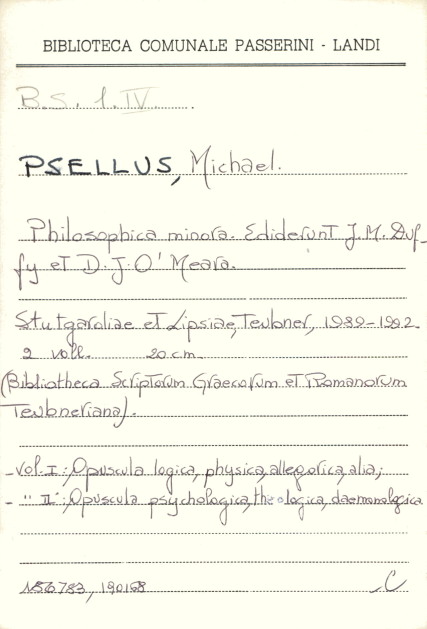 BIBLIOTECA COMUNALE PASSERINI - LANDI
B.S. 1. IV
PSELLUS, Michael.
Philosophica minora. Ediderunt J.M. Duf-
fy et D.J. O'Meara.
Stutgardiae et Lipsiae, Teubner, 1989-1992.
2 voll. 20 cm.
(Bibliotheca Scriptorum Graecorum et Romanorum
Teubneriana).
- vol. I: Opuscula logica, physica, allegorica, alia;
- " II: Opuscula psychologica, theologica, daemonologica.
190168